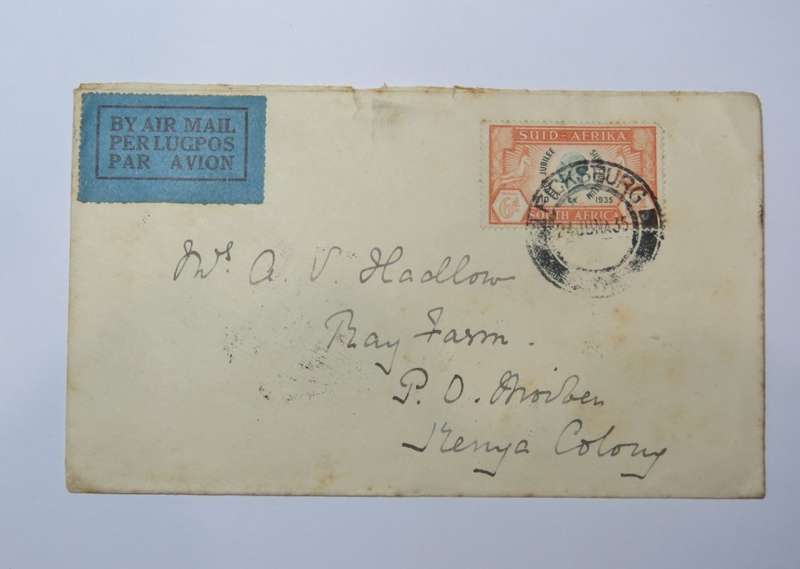 BY AIR MAIL
PER LUGPOS
PAR AVION
SUID-AFRIKA
JUBILEE
1935
6d
SOUTH AFRICA
FICKSBURG
24 JUN 35
Mrs A. V. Hadlow
Ray Farm.
P. O. Moiben
Kenya Colony